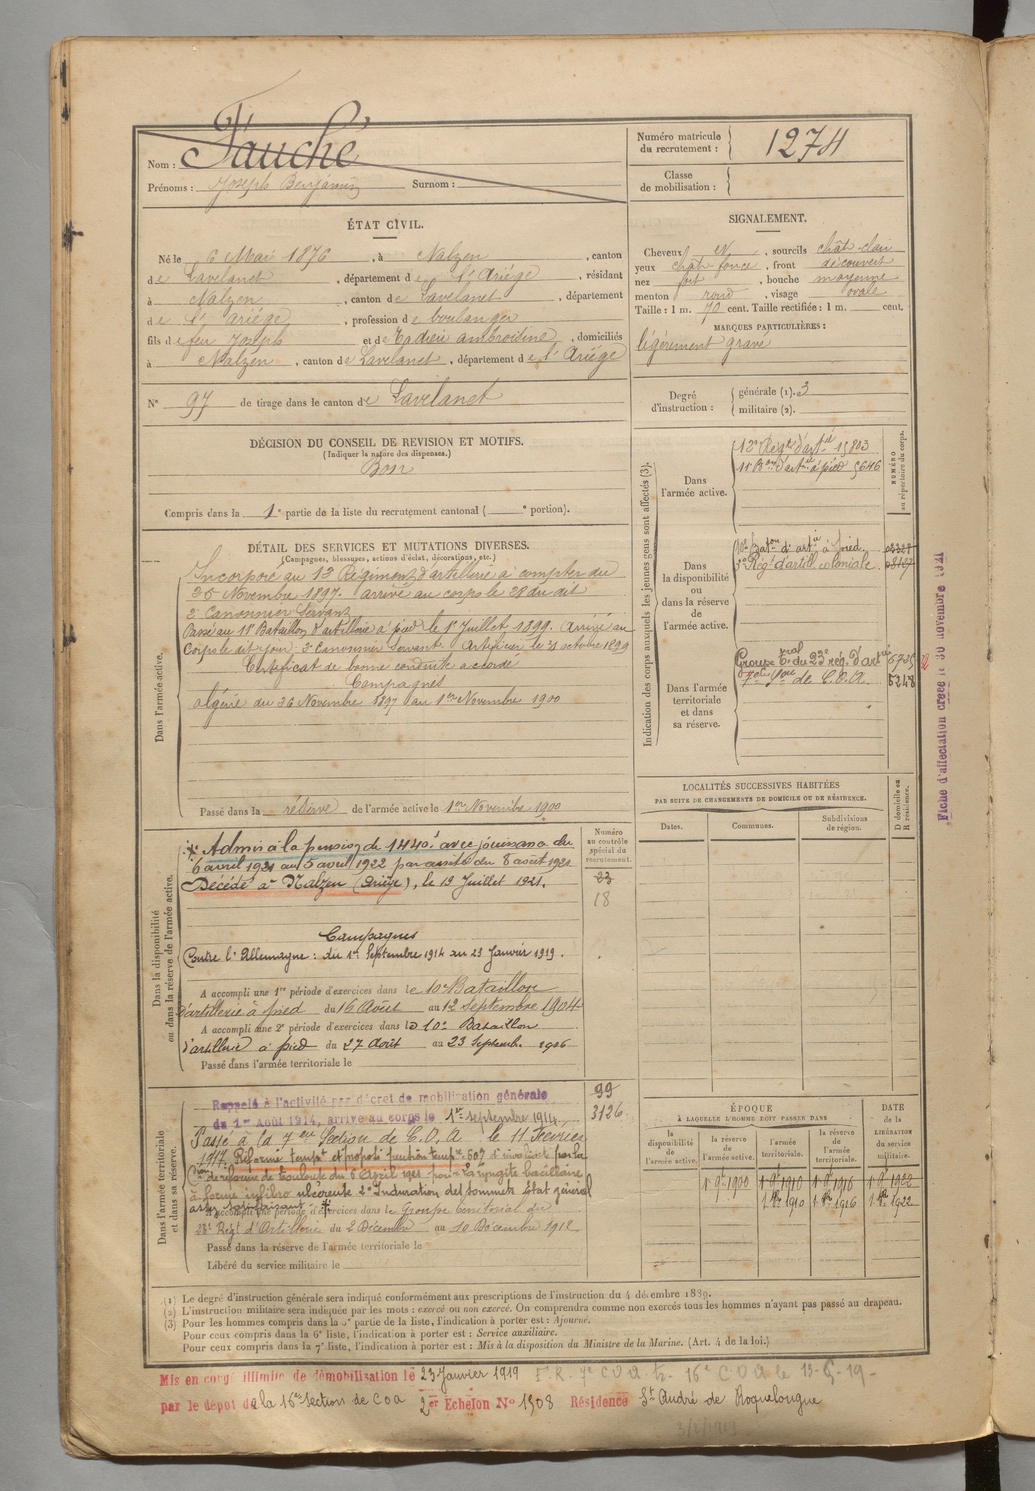 Nom : Fauché
Prénoms : Joseph Benjamin Surnom :
Numéro matricule du recrutement : 1274
Classe de mobilisation :
ÉTAT CIVIL.
Né le 6 Mai 1876, à Nalzen, canton
de Lavelanet, département de l'Ariége, résidant
à Nalzen, canton de Lavelanet, département
de l'Ariége, profession de boulanger
fils de feu Joseph et de Tadieu ambroisine, domiciliés
à Nalzen, canton de Lavelanet, département de l'Ariége
N° 97 de tirage dans le canton de Lavelanet
SIGNALEMENT.
Cheveux et, sourcils chât-clair
yeux chât foncé, front découvert
nez fort, bouche moyenne
menton rond, visage ovale
Taille : 1 m. 70 cent. Taille rectifiée : 1 m. cent.
MARQUES PARTICULIÈRES :
légèrement gravé
Degré d'instruction : générale (1). 3
militaire (2).
DÉCISION DU CONSEIL DE REVISION ET MOTIFS.
(Indiquer la nature des dispenses.)
Bon
Compris dans la 1e partie de la liste du recrutement cantonal ( e portion).
DÉTAIL DES SERVICES ET MUTATIONS DIVERSES.
(Campagnes, blessures, actions d'éclat, décorations, etc.)
Dans l'armée active.
Incorporé au 12 Régiment d'artillerie à compter du
25 Novembre 1897. arrivé au corps le 28 du dit
2e Canonnier Servant
Passé au 11e Bataillon d'artillerie à pied le 1er Juillet 1899. Arrivé au
Corps le dit jour 2e Canonnier servant. Artificier le 21 octobre 1899
Certificat de bonne conduite accordé
Campagnes
algérie du 26 Novembre 1897 au 1er Novembre 1900
Passé dans la réserve de l'armée active le 1er Novembre 1900
Indication des corps auxquels les jeunes gens sont affectés (3).
NUMÉRO au répertoire du corps.
Dans l'armée active.
12e Régt d'artie 15803
11e Bon d'artie à pied 5646
Dans la disponibilité ou dans la réserve de l'armée active.
10e Baton d'artie à pied.
Régt d'artill coloniale.
Dans l'armée territoriale et dans sa réserve.
Groupe Trial du 23e rég. d'artie 6735
7e Son de C.O.A. 5248
Fiche d'affectation créée le 30 novembre 1921
LOCALITÉS SUCCESSIVES HABITÉES
PAR SUITE DE CHANGEMENTS DE DOMICILE OU DE RÉSIDENCE.
Dates. Communes. Subdivisions de région. D domicile ou R résidence.
Dans la disponibilité ou dans la réserve de l'armée active.
* Admis à la pension de 1440f avec jouissance du
6 avril 1921 au 5 avril 1922 par arrêté du 8 août 1921
Décédé à Nalzen (Ariège), le 19 Juillet 1921.
Numéro au contrôle spécial du recrutement.
23
18
Campagnes
Contre l'Allemagne : du 1er Septembre 1914 au 23 Janvier 1919.
A accompli une 1re période d'exercices dans le 10e Bataillon
d'artillerie à pied du 16 Août au 12 Septembre 1904
A accompli une 2e période d'exercices dans le 10e Bataillon
d'artillerie à pied du 27 Août au 23 Septemb. 1906
Passé dans l'armée territoriale le
Dans l'armée territoriale et dans sa réserve.
99
3126
Rappelé à l'activité par décret de mobilisation générale
du 1er Août 1914, arrivé au corps le 1er septembre 1914
Passé à la 7eme Section de C.O.A. le 11 Février
1917. Réformé tempre et proposé pension tempre 60% d'invalidité par la
Cion de réforme de Toulouse du 6 Avril 1921 pour 1° laryngite bacillaire
à forme infiltro ulcéreuse 2° Induration des sommets état général
assez satisfaisant. *
A accompli une période d'exercices dans le Groupe territorial du
23e Régt d'Artillerie du 2 Décembre au 10 Décembre 1912
Passé dans la réserve de l'armée territoriale le
Libéré du service militaire le
ÉPOQUE
À LAQUELLE L'HOMME DOIT PASSER DANS
la disponibilité de l'armée active. la réserve de l'armée active. l'armée territoriale. la réserve de l'armée territoriale.
DATE de la LIBÉRATION du service militaire.
1 9bre 1900 1 9bre 1910 1 9bre 1916 1 9bre 1922
1 8bre 1910 1 8bre 1916 1 8bre 1922
(1) Le degré d'instruction générale sera indiqué conformément aux prescriptions de l'instruction du 4 décembre 1889.
(2) L'instruction militaire sera indiquée par les mots : exercé ou non exercé. On comprendra comme non exercés tous les hommes n'ayant pas passé au drapeau.
(3) Pour les hommes compris dans la 5e partie de la liste, l'indication à porter est : Ajourné.
Pour ceux compris dans la 6e liste, l'indication à porter est : Service auxiliaire.
Pour ceux compris dans la 7e liste, l'indication à porter est : Mis à la disposition du Ministre de la Marine. (Art. 4 de la loi.)
Mis en congé illimité de démobilisation le 23 Janvier 1919 16e COA le 13-5-19-
par le dépôt de la 16e Section de COA 2er Echelon N° 1508 Résidence St André de Roquelongue